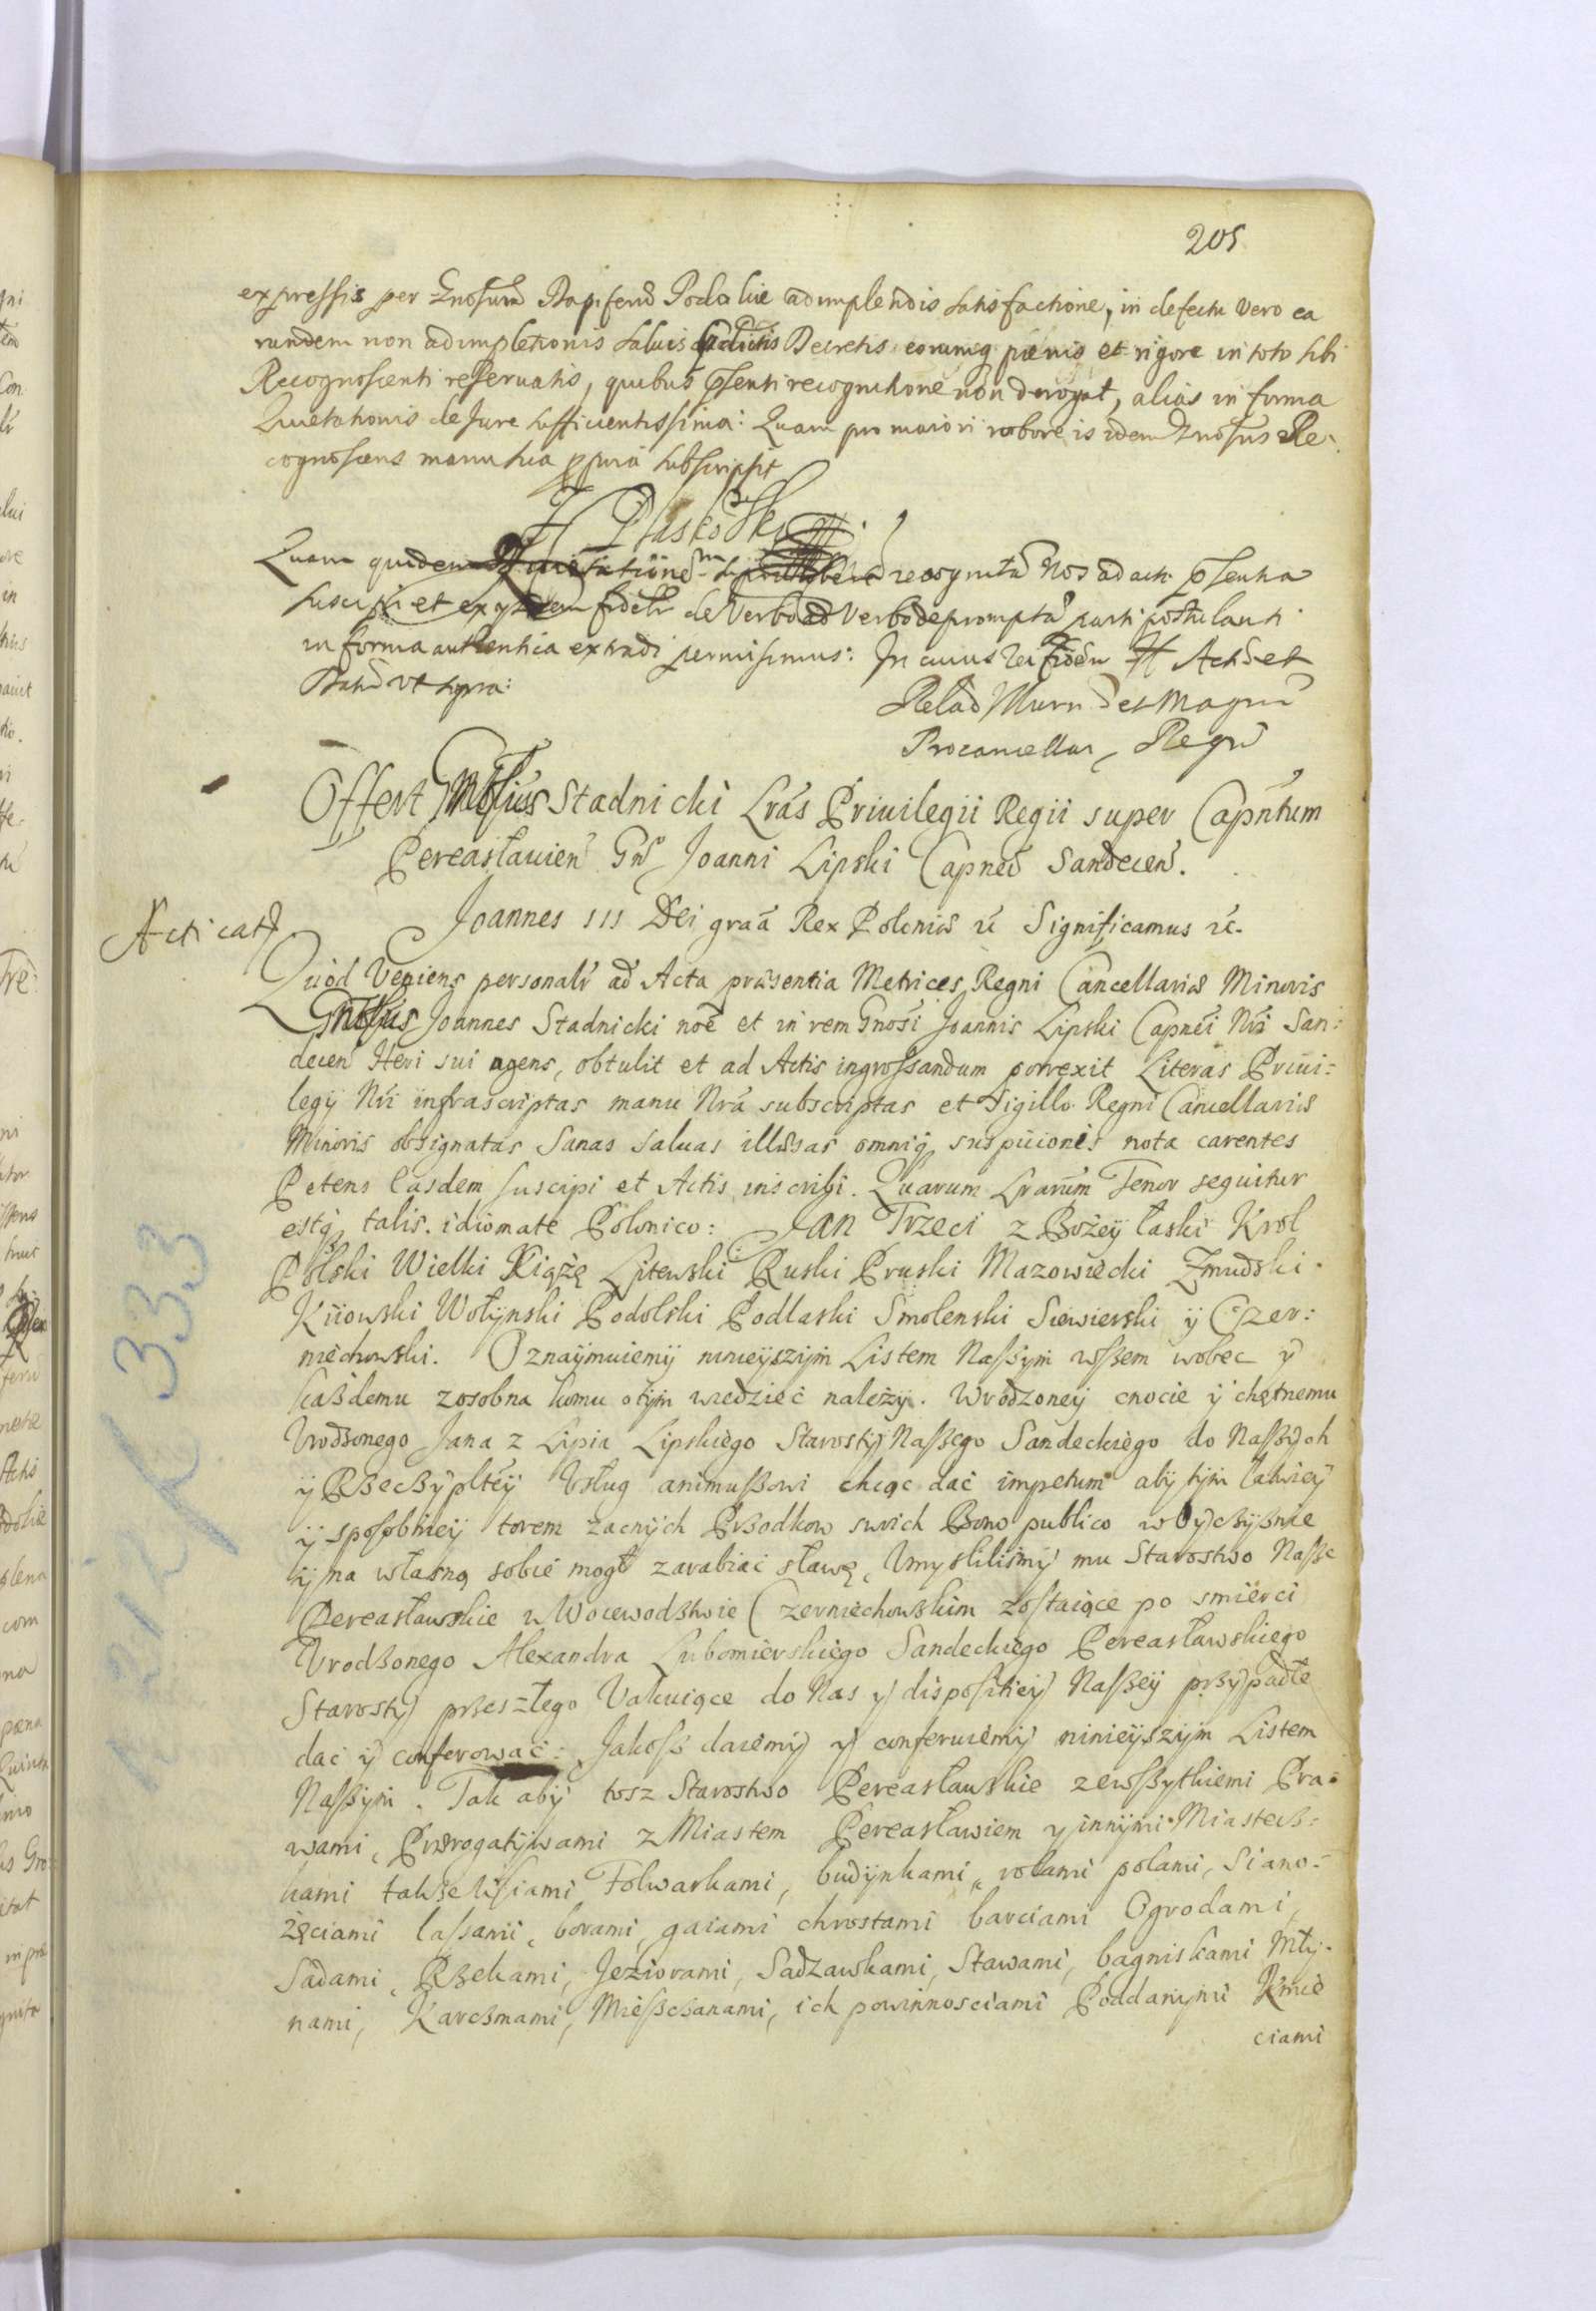 205
expressis per Gnosum Dapiferũ Podoliæ adimplendis satisfactione, in defectu vero ea
rundem non adimpletionis saluis Decretis eorumq pœnis et rigore in toto sibi
Recognoscenti reseruatis, quibus pñsenti recognitione non derogat, alias in forma
Quietationis de Jure sufficientissima: Quam pro maiori robore is idem Gnosus Re:
cognoscens manu sua ppria subscripsit
Quam quidem Quietationẽ recognitã Nos ad acta pñsentia
suscipi et ex ijsdem fideli de Verbo ad Verbo depromptã parti postulanti
in forma authentica extradi permisimus: In cuius rei fidem Actũ et
Datũ vt supra:
Relaõ et Magni
Procancellar Regni
Offert Gnosus Stadnicki Lrás Priuilegii Regii super Capñtum
Pereasłauień Gñs Joanni Lipski Capneõ Sandeceń.
Acticat
Joannes III Dei graã Rex Poloniæ rc̃ Significamus rc̃.
Quod Veniens personalr̃ ad Acta præsentia Metrices Regni Cancellariæ Minoris
Gnosus Joannes Stadnicki noẽ et in rem Gnosi Joannis Lipski Capnei Nri San:
decen Heri sui agens, obtulit et ad Actis ingrossandum porrexit Literas Priui:
legij Nri infrascriptas manu Nrã subscriptas et Sigillo Regni Cancellariæ
Minoris obsignatas Sanas saluas illæsas omniq suspicionis nota carentes
Petens easdem suscipi et Actis inscribi. Quarum Lrarũm Tenor sequitur
estq talis. idiomate Polonico: Jan Trzeci z Bożeÿ łaski Krol
Polski Wielki Xiążę Litewski Ruski Pruski Mazowiecki Zmudski
Kiiowski Wołÿnski Podolski Podlaski Smolenski Siewierski ÿ Czer:
niechowski. Oznaÿmuiemÿ ninieÿszÿm Listem Naßÿm wßem wobec ÿ
każdemu zosobna komu otÿm wiedziec należÿ. Wrodzoneÿ cnocie ÿ chętnemu
Vrodzonego Jana z Lipia Lipskiego Starostÿ Naßego Sandeckiego do Naßÿch
ÿ Rzeczÿpltey Vsług animußowi chcąc dać impetum abÿ tÿm łatwieÿ
ÿ sposobnieÿ torem zacnÿch Przodkow swich Bono publico w Oÿczÿznie
ÿ na własną sobie mogł zarabiać sławę, Vmyslilismÿ mu Starostwo Naße
Pereasławskie w Woiewodztwie Czerniechowskim zostaiące po smierci
Vrodzonego Alexandra Lubomierskiego Sandeckiego Pereasławskiego
Starostÿ przeszłego Vakuiące do Nas ÿ dispositieÿ Naßeÿ przÿpadłe
dać ÿ conferować: Jakoß daiemÿ ÿ conferuiemÿ ninieÿszÿm Listem
Naßÿm. Tak abÿ tosz Starostwo Pereasławskie zewßÿtkiemi Pra:
wami, Prerogatÿwami z Miastem Pereasławiem ÿ innÿmi Miastecz:
kami takze Wsiami Folwarkami, budÿnkami, rolami polami, siano:
żęciami lasami, borami, gaiami chrostami barciami Ogrodami,
Sadami, Rzekami, Jeziorami, Sadzawkami, Stawami, bagniskami Młÿ:
nami, Karczmami, Mießczanami, ich powinnosciami Poddanÿmi Kmie
ciami